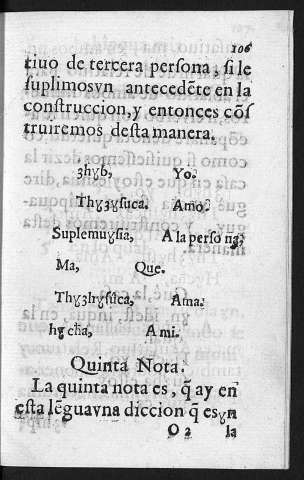 106
tiuo de tercera persona, si le
suplimosvn antecedẽte en la
construccion, y entonces cõs
truiremos desta manera.
ȝhɣb, Yo.
Thɣȝɣsuca. Amo.
Suplemuɣsia, A la persona,
Ma, Que.
Thɣȝhɣsuca, Ama.
hɣcha, A mi.
Quinta Nota.
La quinta nota es, q̃ ay en
esta lẽguavna diccion q̃ esɣn
O 2 la